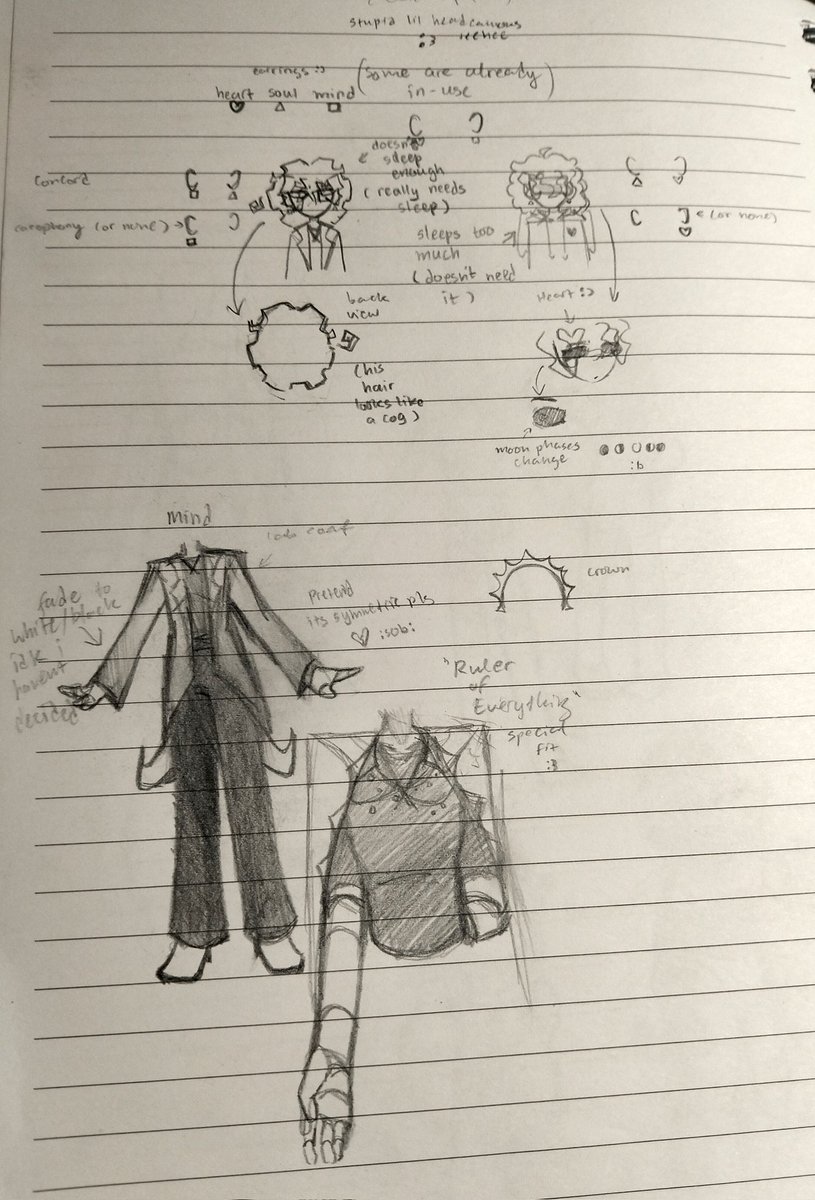 stupid lil headcanons
:3 heehee
earrings :)
(some are already
in-use)
heart soul mind
doesn't
sleep
enough
(really needs
sleep)
concord
cacophony (or none)
(or none)
sleeps too
much
(doesn't need
it)
back
view
(his
hair
looks like
a cog)
Heart :3
moon phases
change
:b
mind
fade to
white/black
idk i
havent
decided
pretend
its symmetric pls
:sob:
crown
"Ruler
of
Everything"
special
fit
:3